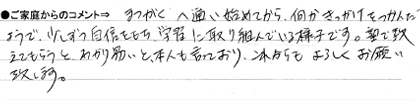 ●ご家庭からのコメント⇒ まつがくへ通い始めてから、何かきっかけをつかんだ
ようで、少しずつ自信をもち、学習に取り組んでいる様子です。塾で教
えてもらうと、わかり易いと、本人も言っており、これからもよろしくお願い
致します。